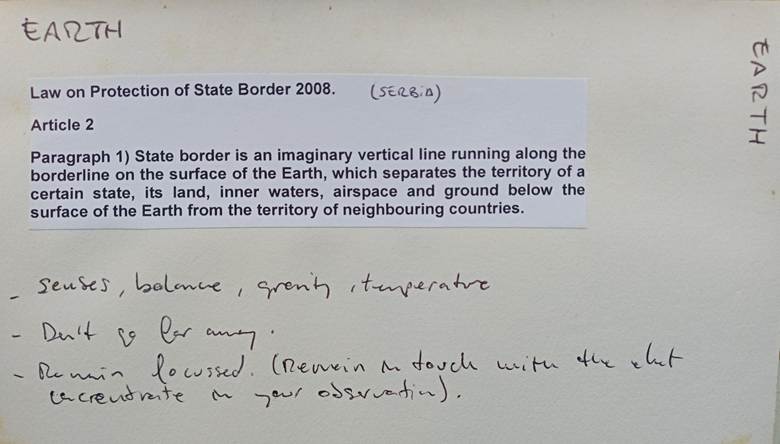 EARTH
EARTH
Law on Protection of State Border 2008. (SERBIA)
Article 2
Paragraph 1) State border is an imaginary vertical line running along the
borderline on the surface of the Earth, which separates the territory of a
certain state, its land, inner waters, airspace and ground below the
surface of the Earth from the territory of neighbouring countries.
- senses, balance, gravity, temperature
- Don't go far away.
- Remain focussed. (Remain in touch with the
concentrate on your observation).